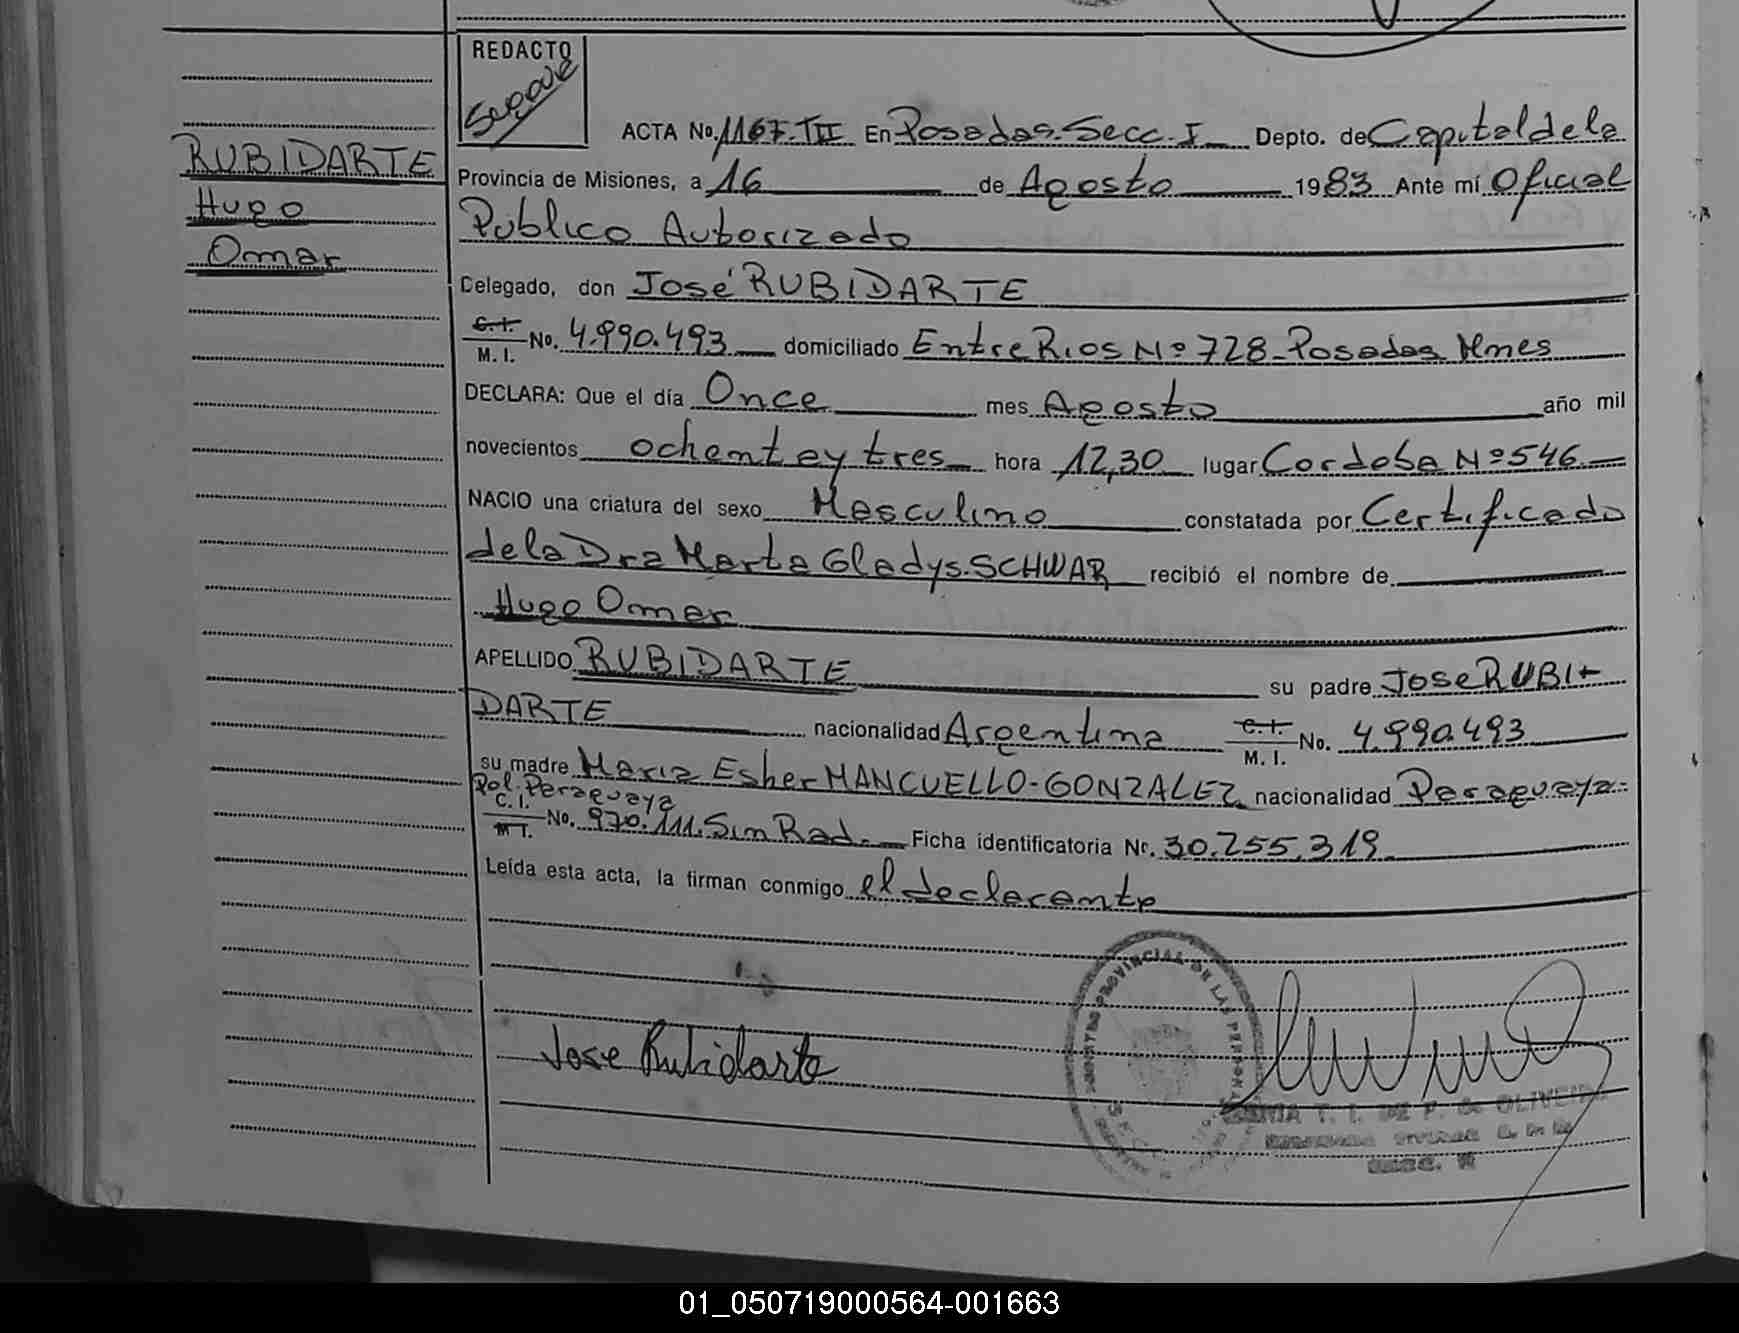 REDACTO
ACTA No. 1167-TII En Posadas. Secc. I Depto. de Capital de la
RUBIDARTE
Hugo
Omar
Provincia de Misiones, a 16 de Agosto 1983 Ante mí Oficial
Público Autorizado
Delegado, don José RUBIDARTE
C.I.
M. I. No. 4.990.493 domiciliado Entre Rios Nº 728-Posadas Mnes
DECLARA: Que el día Once mes Agosto año mil
novecientos ochenta y tres hora 12,30 lugar Cordoba Nº 546
NACIO una criatura del sexo Masculino constatada por Certificado
de la Dra Marta Gladys. SCHWAR recibió el nombre de
Hugo Omar
APELLIDO RUBIDARTE su padre Jose RUBI
DARTE nacionalidad Argentina C.I. M. I. No. 4.990.493
su madre Maria Esher MANCUELLO-GONZALEZ nacionalidad Paraguaya
Pol. Paraguaya
C. I. M I. No. 970.111. Sin Rad. Ficha identificatoria Nr. 30.255.319
Leída esta acta, la firman conmigo el declarante
Jose Rubidarte
PROVINCIAL DE LAS PERSONAS
T. I. DE P. de OLIVEIRA
01_050719000564-001663